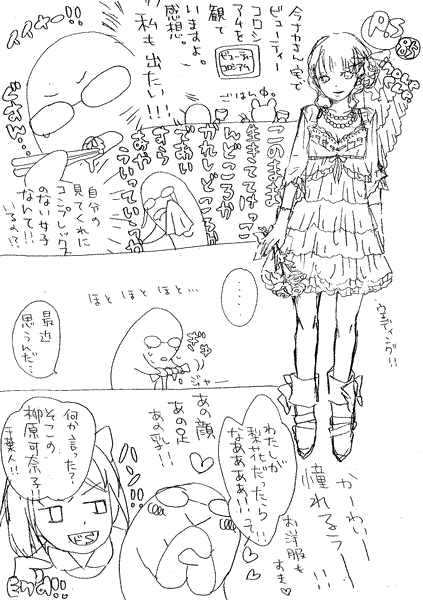 P.S
今ナカさん家で
ビューティー
コロシ
アムを
観て
いますよ。
感想。
私も出たい!!!
ビューティ
コロシアム
ごはん中。
イイナー!!
自分の
見てくれに
コンプレックス
のない女子
なんて!!
いるの!?
このまま
生きててはっこ
んどころか
かれしどころか
であい
すら
あや
ういっていう
……
ほと ほと ほと…
最近
思うんだ…
ジャー
わたしが
梨花だったら
なぁぁぁ!!って
あの顔
あの足
あの乳!!
ハン!!
何か言った?
そこの
柳原可奈子!!
千葉人!!
End!!
ウェディング!!
かーわい
憧れるうー!!
お洋服も
すき